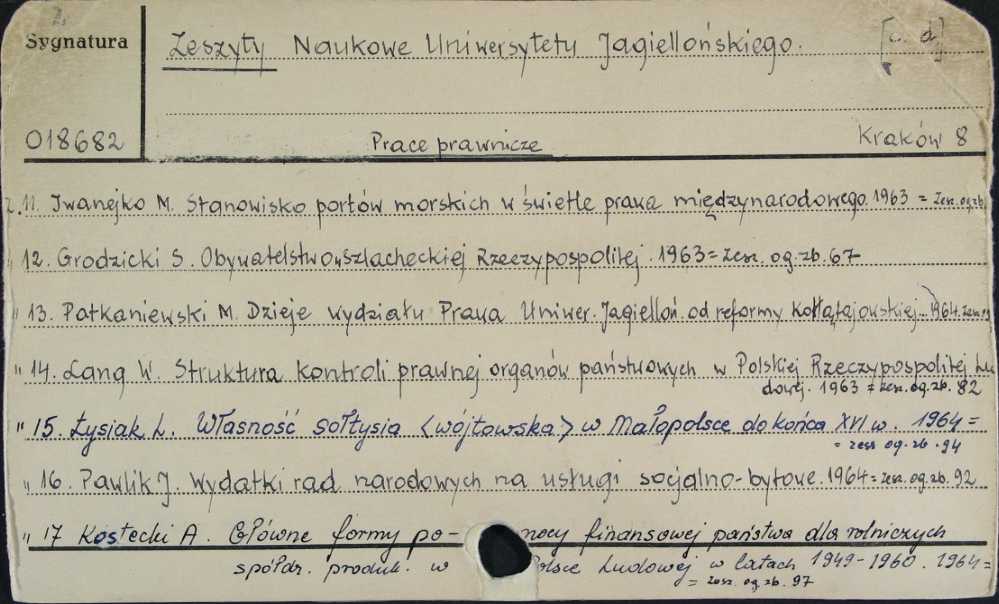 Sygnatura
Zeszyty Naukowe Uniwersytetu Jagiellońskiego. [c. d.]
018682 Prace prawnicze Kraków 8
Z. 11. Iwanejko M. Stanowisko portów morskich w świetle prawa międzynarodowego. 1963 = zesz. og. zb.
" 12. Grodzicki S. Obywatelstwo w szlacheckiej Rzeczypospolitej. 1963 = zesz. og. zb. 67
" 13. Patkaniewski M. Dzieje wydziału Prawa Uniwer. Jagielloń. od reformy Kołłątajowskiej... 1964. zesz. og
" 14. Lang W. Struktura kontroli prawnej organów państwowych w Polskiej Rzeczypospolitej Lu
dowej. 1963 = zesz. og. zb. 82
" 15. Łysiak L. Własność sołtysia <wójtowska> w Małopolsce do końca XVI w. 1964 =
= zesz og. zb. 94
" 16. Pawlik J. Wydatki rad narodowych na usługi socjalno-bytowe. 1964 = zesz. og. zb. 92
" 17 Kostecki A. Główne formy po- mocy finansowej państwa dla rolniczych
spółdz. produk. w olsce Ludowej w latach 1949-1960. 1964 =
= zesz. og. zb. 97